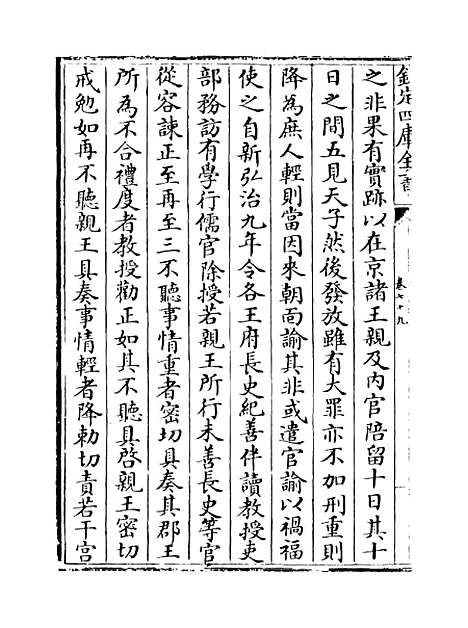 欽定四庫全書
卷七十九
之非果有實跡以在京諸王親及内官陪留十日其十
日之間五見天子然後發放雖有大罪亦不加刑重則
降為庶人輕則當因來朝面諭其非或遣官諭以禍福
使之自新弘治九年令各王府長史紀善伴讀教授吏
部務訪有學行儒官除授若親王所行未善長史等官
從容諫正至再至三不聽事情重者密切具奏其郡王
所為不合禮度者教授勸正如其不聽具啓親王密切
戒勉如再不聽親王具奏事情輕者降勅切責若干宫